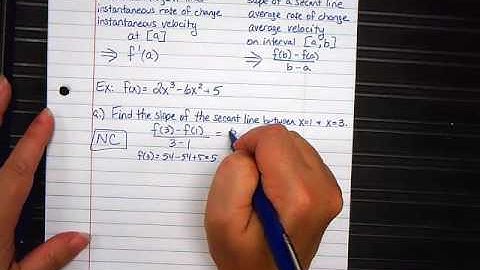 instantaneous rate of change
instantaneous velocity
at [a]
⇒ f'(a)
slope of a secant line
average rate of change
average velocity
on interval [a,b]
⇒ f(b)-f(a)
b-a
Ex: f(x) = 2x³-6x²+5
a.) Find the slope of the secant line between x=1 + x=3.
NC
f(3)-f(1) =
3-1
f(3)=54-54+5=5